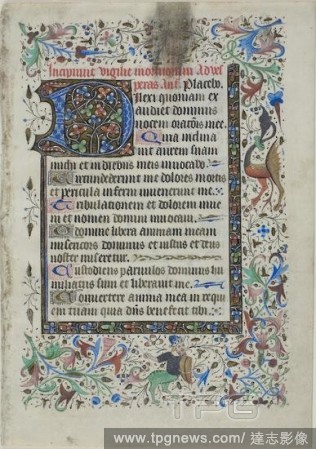 Incipiunt vigilie mortuorum Ad ves
peras Ant. Placebo.
Dilexi quoniam ex
audiet dominus
vocem orationis mee.
Quia inclina
vit aurem suam
michi et in diebus meis invocabo.
Circundederunt me dolores mortis
et pericula inferni invenerunt me.
Tribulationem et dolorem inve
ni et nomen domini invocavi.
O domine libera animam meam
misericors dominus et iustus et deus
noster miseretur.
Custodiens parvulos dominus hu
miliatus sum et liberavit me.
Convertere anima mea in requi
em tuam quia dns benefecit tibi.
TPG
www.tpgnews.com/ 達志影像